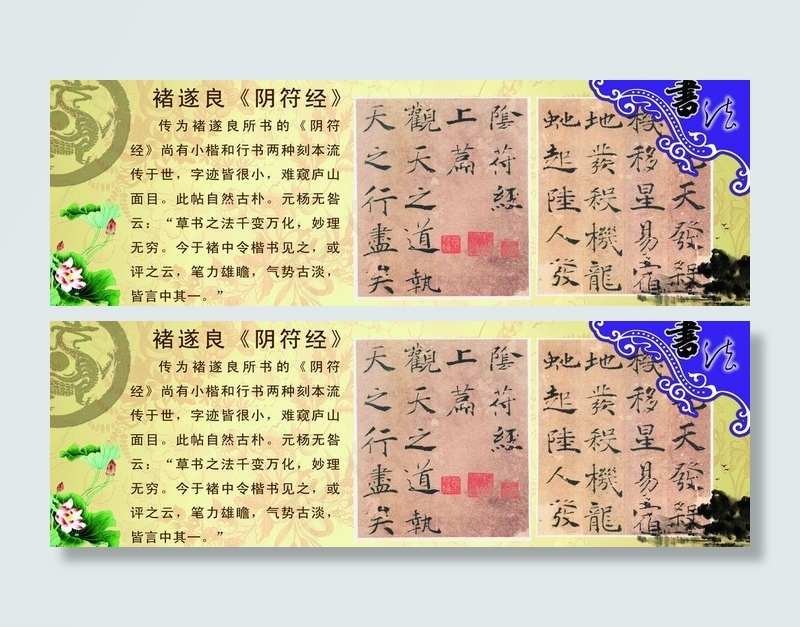 褚遂良《阴符经》
传为褚遂良所书的《阴符
经》尚有小楷和行书两种刻本流
传于世，字迹皆很小，难窥庐山
面目。此帖自然古朴。元杨无咎
云：“草书之法千变万化，妙理
无穷。今于褚中令楷书见之，或
评之云，笔力雄瞻，气势古淡，
皆言中其一。”
陰符經
上篇
觀天之道執
天之行盡矣
天發殺
機移星易宿
地發殺機龍
虵起陸人發
書法
褚遂良《阴符经》
传为褚遂良所书的《阴符
经》尚有小楷和行书两种刻本流
传于世，字迹皆很小，难窥庐山
面目。此帖自然古朴。元杨无咎
云：“草书之法千变万化，妙理
无穷。今于褚中令楷书见之，或
评之云，笔力雄瞻，气势古淡，
皆言中其一。”
陰符經
上篇
觀天之道執
天之行盡矣
天發殺
機移星易宿
地發殺機龍
虵起陸人發
書法